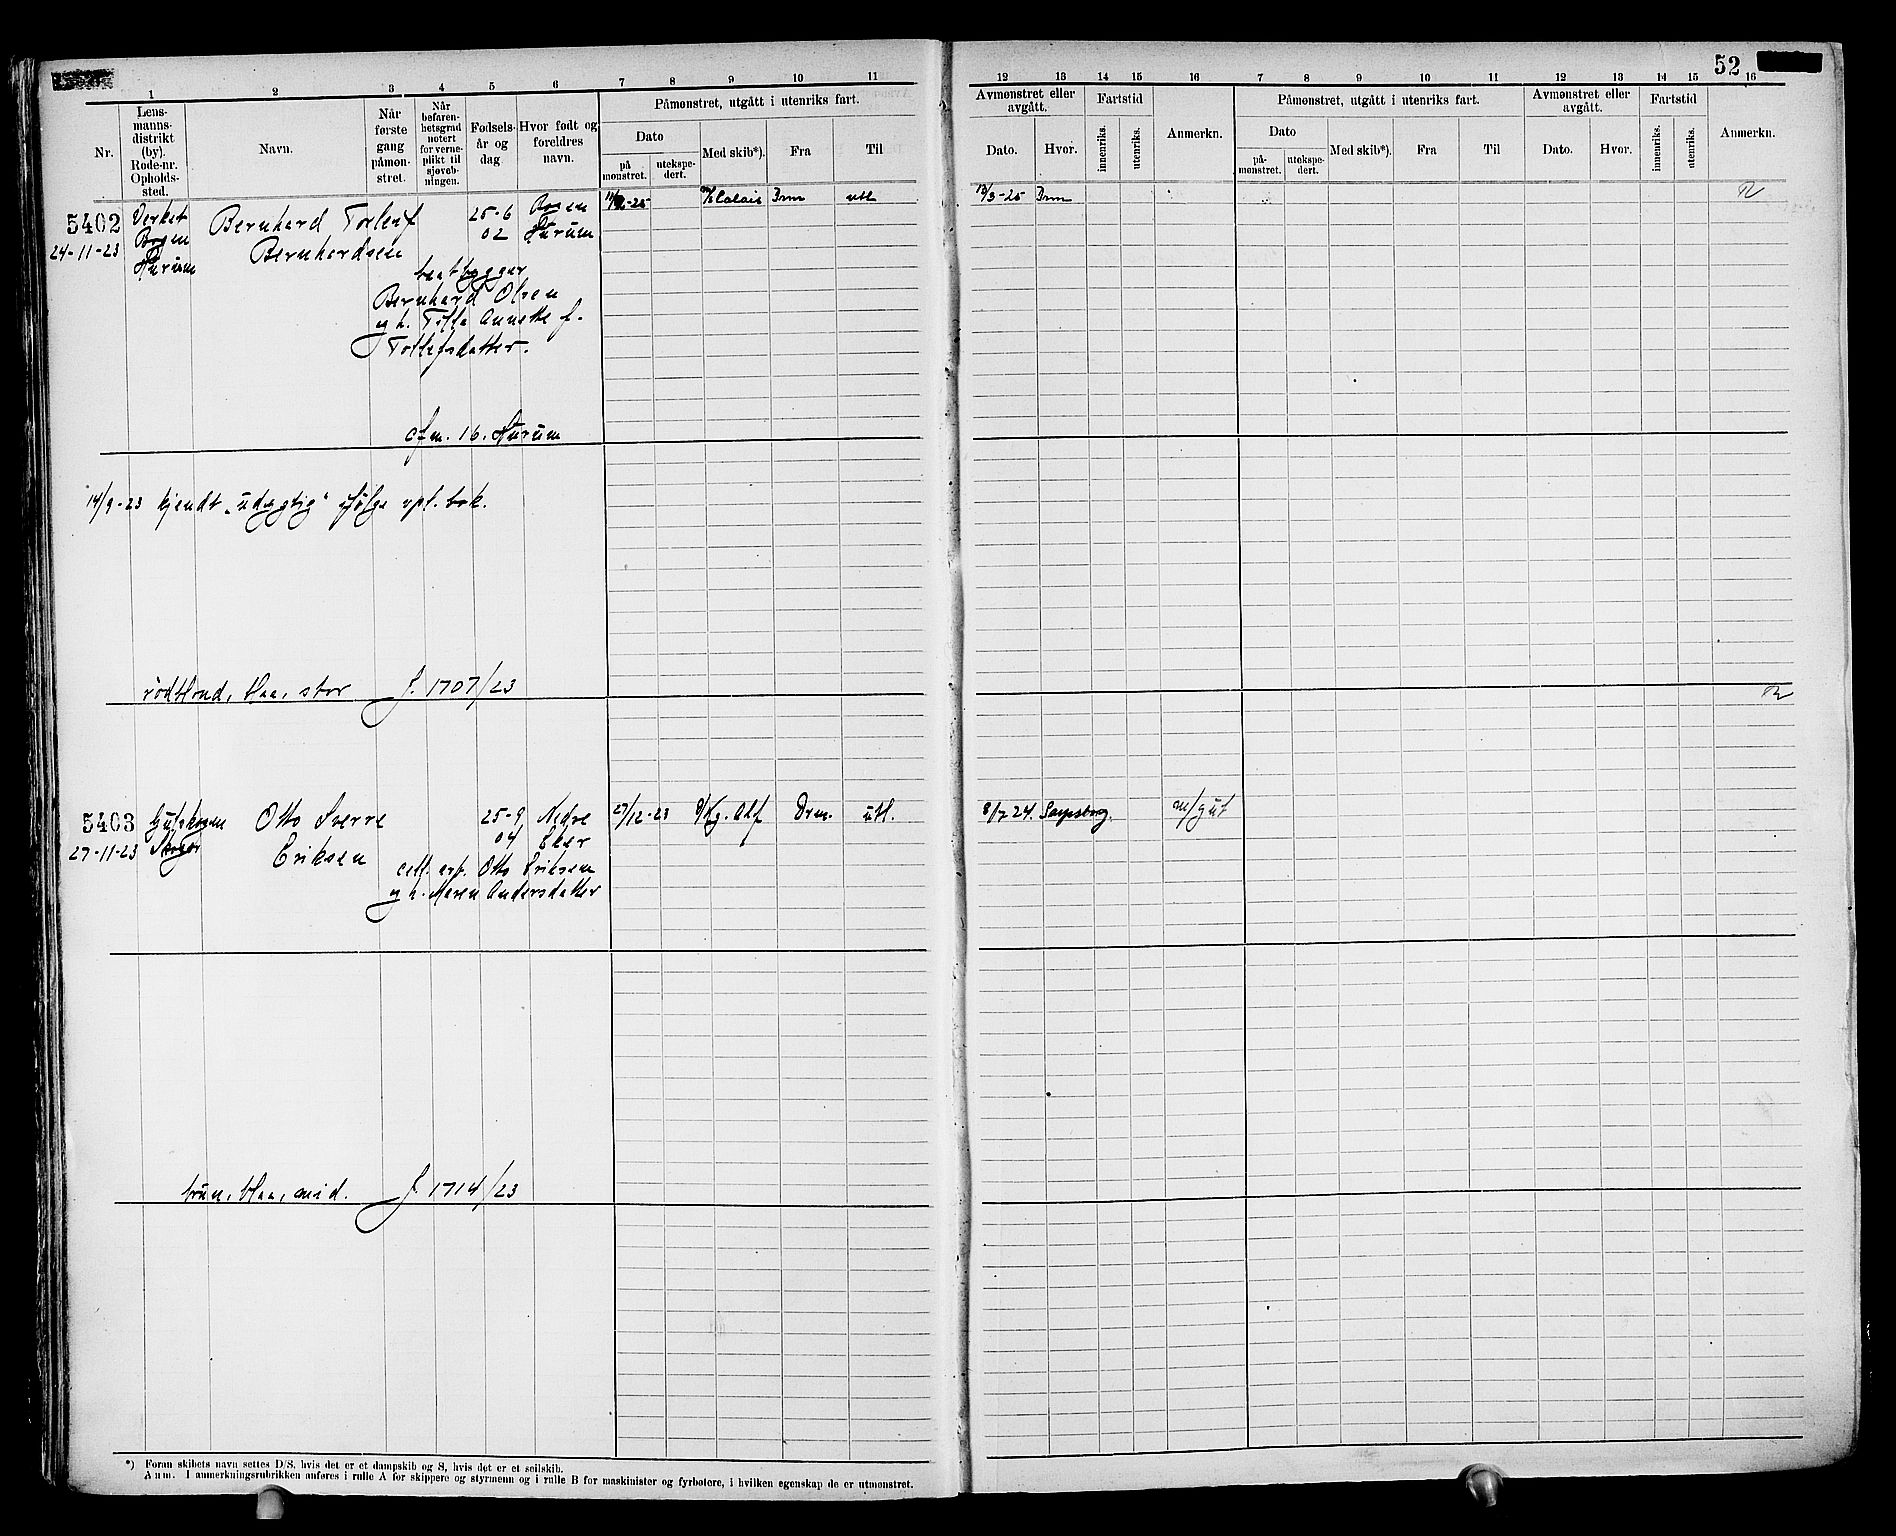 52
1 2 3 4 5 6 7 8 9 10 11
12 13 14 15 16 7 8 9 10 11 12 13 14 15 16
Nr.
Lens-
manns-
distrikt
(by).
Rode-nr.
Opholds-
sted.
Navn.
Når
første
gang
påmøn-
stret.
Når
befaren-
hetsgrad
notert
for verne-
plikt til
sjøøveb-
ningen.
Fødsels-
år og
dag.
Hvor født og
foreldres
navn.
Påmønstret, utgått i utenriks fart.
Dato
på
mønstret.
utekspe-
dert.
Med skib*).
Fra
Til
Avmønstret eller
avgått.
Dato.
Hvor.
Fartstid
innenriks.
utenriks.
Anmerkn.
Påmønstret, utgått i utenriks fart.
Dato
på-
mønstret.
utekspe-
dert.
Med skib*).
Fra
Til
Avmønstret eller
avgått.
Dato.
Hvor.
Fartstid
innenriks.
utenriks.
Anmerkn.
5402 Verket Bernhard Torleif 25-6 Bogen -25 Calais Drm utl 13/3-25 Drm
24-11-23 Bogen Bernhardsen 02 Hurum
Hurum
baatbygger
Bernhard Olsen
og h. Tilla Annette f.
Tollefsdatter.
cfm. 16. Hurum
14/9-23 kjendt „udygtig“ ifølge vpl. bok.
rødblond, blaa, stor J. 1707/23
5403 Otto Sverre 25-9 Nedre 27/12-23 Kg. Alf Drm. utl. 8/7 24. Sarpsborg. m/gut
27-11-23 Eriksen 04 Eker
cell. arb. Otto Eriksen
og h. Maren Andersdatter
brun, blaa, mid. J. 1714/23
*) Foran skibets navn settes D/S, hvis det er et dampskib og S, hvis det er et seilskib.
Anm. I anmerkningsrubrikken anføres i rulle A for skippere og styrmenn og i rulle B for maskinister og fyrbøtere, i hvilken egenskap de er utmønstret.